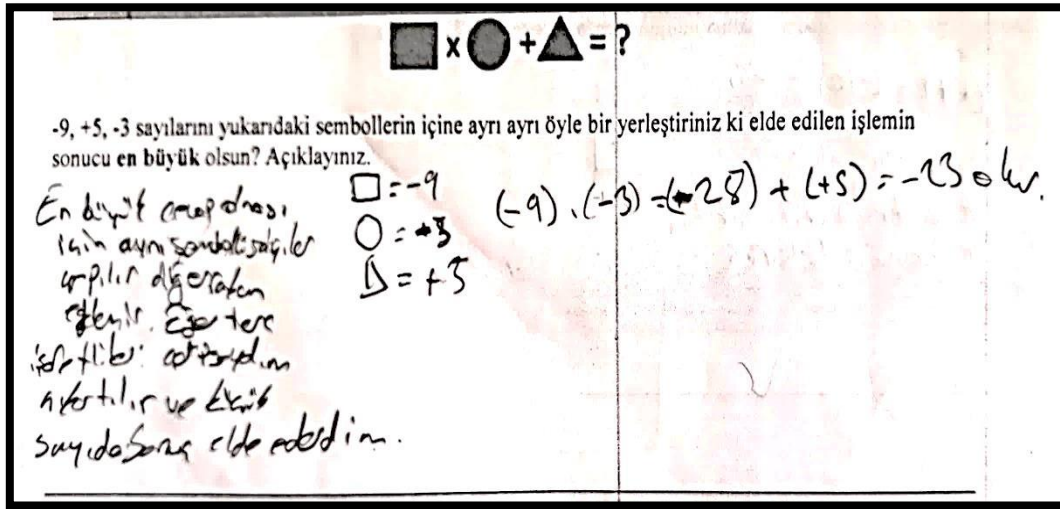 x + = ?
-9, +5, -3 sayılarını yukarıdaki sembollerin içine ayrı ayrı öyle bir yerleştiriniz ki elde edilen işlemin
sonucu en büyük olsun? Açıklayınız.
□ = -9
○ = -3
△ = +5
(-9) . (-3) = (-28) + (+5) = -23 olur.
En büyük cevap olması
için aynı sembollü sayılar
çarpılır diğer
eklenir. Eğer ters
işaretlileri
ve küçük
sayıda sonuç elde ederdim.